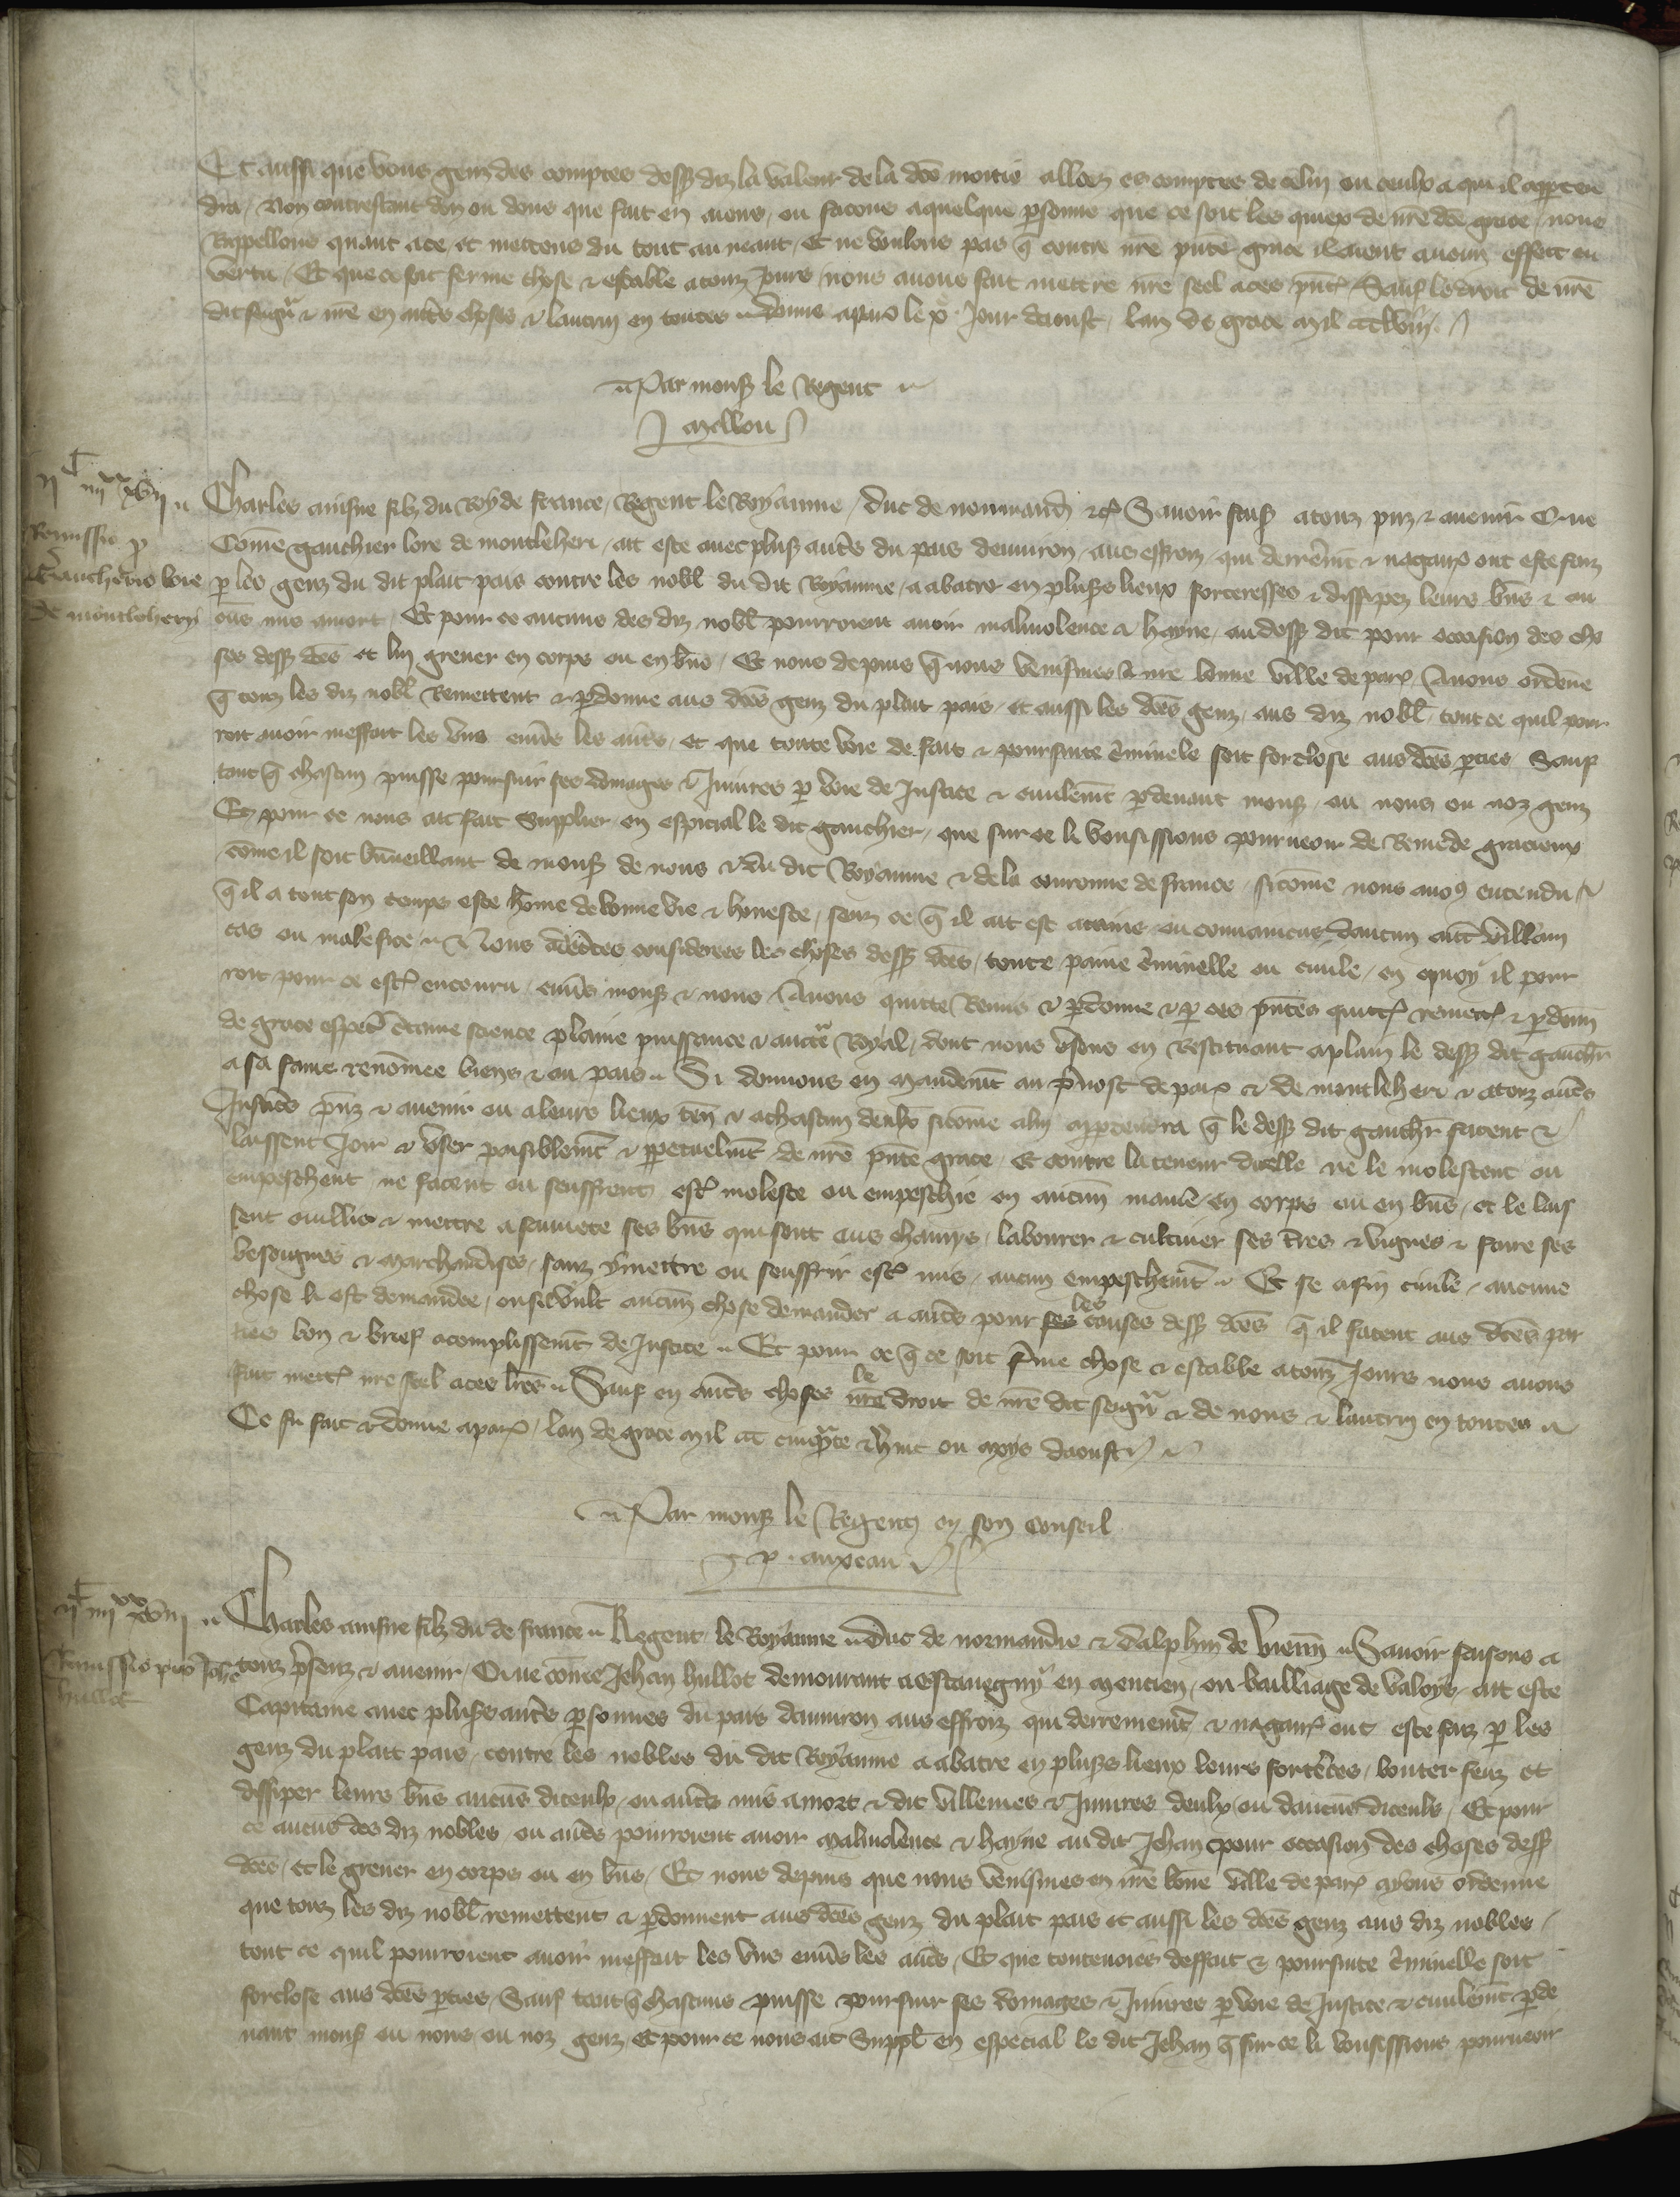 Et aussi que vous gens des comptes dessus diz la valeur de la dce moitie alloez es comptes de celui ou ceulx a qui il apparten
dra, Non contrestant don ou dons que fait en aions, ou facons a quelque psonne que ce soit les quiex de nre dce grace, nous
Rappellons quant a ce, et mettons du tout au neant, Et ne voulons pas q contre nre pnte grace il aient aucun effect ou
vertu, Et que ce soit ferme chose & estable a touz jours, nous avons fait mettre nre seel a ces pntes, Sauf le droit de nre
dit seigneur & nre en autres choses & lautruy en toutes, donne a paris le x.e Jour daoust, lan de grace mil ccclviii.
Par mons le Regent
Mellou
IIc IIIIxx XVII
Charles ainsne filz du Roy de france, Regent le Royaume, duc de normandie &c Savoir faisons a touz pnz & avenir Que
Remissio p
Gaucherio lore
de montleheri
Come gauchier lore de montleheri, ait este avec plus autres du pais denviron, aus effroiz, qui derrenement & nagaires ont este faiz
p les genz du dit plait pais contre les nobl du dit Royaume, a abatre en pluss lieux forteresses & dissipez leurs bns & au
cuns mis a mort, Et pour ce aucuns des diz nobl pourroient avoir malivolence & hayne, au dessus dit pour occasion des cho
ses dessus dces et lui grever en corps ou en bns, Et nous depuis q nous venismes a nre bonne ville de paris Avons ordene
q touz les diz nobl Remettent & pdonne aus dces genz du plait pais, et aussi les dces genz, aus diz nobl, tout ce quil pour
roit avoir meffait les uns envers les autres, et que toute voie de fait & poursuite criminele soit forclose aus dces pties Sauf
tant q chascun puisse poursuir ses domages & Injures p voie de Justice & civilement pdevant mons ou nous ou noz genz
Et pour ce nous ait fait Supplier en especial le dit gauchier, que sur ce li vousissions pourveoir de Remede gracieux
come il soit bienveillant de mons de nous & du dit Royaume & de la couronne de france, si come nous avons entendu
q il a tout son temps este home de bonne vie & honeste, senz ce q il ait est attaint ou convaincus daucun autre villain
cas ou malefice, Nous adcertes considerees les choses dessus dces, toute paine criminelle ou civile, en quoy il pour
roit pour ce estre encouru, envers mons & nous, Avons quitte Remis & pdonne & p ces pntes quittons remettons & pdonnons
de grace especial certaine science plaine puissance & auctorite Royal, dont nous usons en Restituant a plain le dessus dit gauchier
a sa fame renommee biens & au pais, Si donnons en mandement au prevost de paris & de montleheri & a touz autres
Justices pnz & avenir ou a leurs lieux ten & a chascun deulx si come a lui appartendra q le dessus dit gauchier facent &
laissent Joir & user paisiblement & perpetuelment de nre pnte grace, Et contre la teneur dicelle ne le molestent ou
empeschent ne facent ou seuffrent estre moleste ou empeschie en aucune maniere en corps ou en bns, et le lais
sent cuillir & mettre a sauvete ses bns qui sont aus champs, labourer & cultiver ses terres & vignes & faire ses
besoignes & marchandises, sanz y mettre ou seuffrir estre mis, aucun empeschement, Et se a fin civile, aucune
chose li est demandee, ou sil veult aucune chose demander a autres pour les causes dessus dces q il facent aus dces par
ties bon & brief acomplissement de Justice, Et pour ce q ce soit ferme chose & estable a touz Jours nous avons
fait mettre nre seel a ces lres, Sauf en autres choses le droit de nre dit seigneur & de nous & lautruy en toutes
Ce fu fait & donne a paris, lan de grace mil ccc cinquante & huit ou moys daoust
Par mons le Regent en son conseil
p. anxeau
IIc IIIIxx XVIII
Charles ainsne filz du de france, Regent le Royaume, Duc de normandie & dalphin de vienn, Savoir faisons a
Remissio pro Johe
hullot
touz presenz & avenir, Que come Jehan hullot demourant a estavegny en mencien, ou bailliage de valoys, ait este
Capitaine avec pluss autres personnes du pais denviron aus effroiz qui derrenement & nagaires ont este faiz p les
genz du plait pais, contre les nobles du dit Royaume a abatre en pluss lieux leurs forteresces, bouter feuz et
dissiper leurs bns aucuns diceulx, ou autres mis a mort & dit villenies & Injures deulx ou daucuns diceuls, Et pour
ce aucuns des diz nobles, ou autres pourroient avoir malivolence & hayne au dit Jehan pour occasion des choses dessus
dces, et le grever en corps ou en bns, Et nous depuis que nous venismes en nre bonne ville de paris ayons ordenne
que touz les diz nobl remettent & pdonnent aus dces genz du plait pais et aussi les dces genz aus diz nobles,
tout ce quil pourroient avoir meffait les uns envers les autres, Et que toutevoies deffait & poursuite criminelle soit
forclose aus dces pties, Sauf tant q chascuns puisse poursuir ses domages & Injures p voie de Justice & civilement pde
vant mons ou nous ou noz genz et pour ce nous ait Suppl en especial le dit Jehan q sur ce li vousissions pourveoir